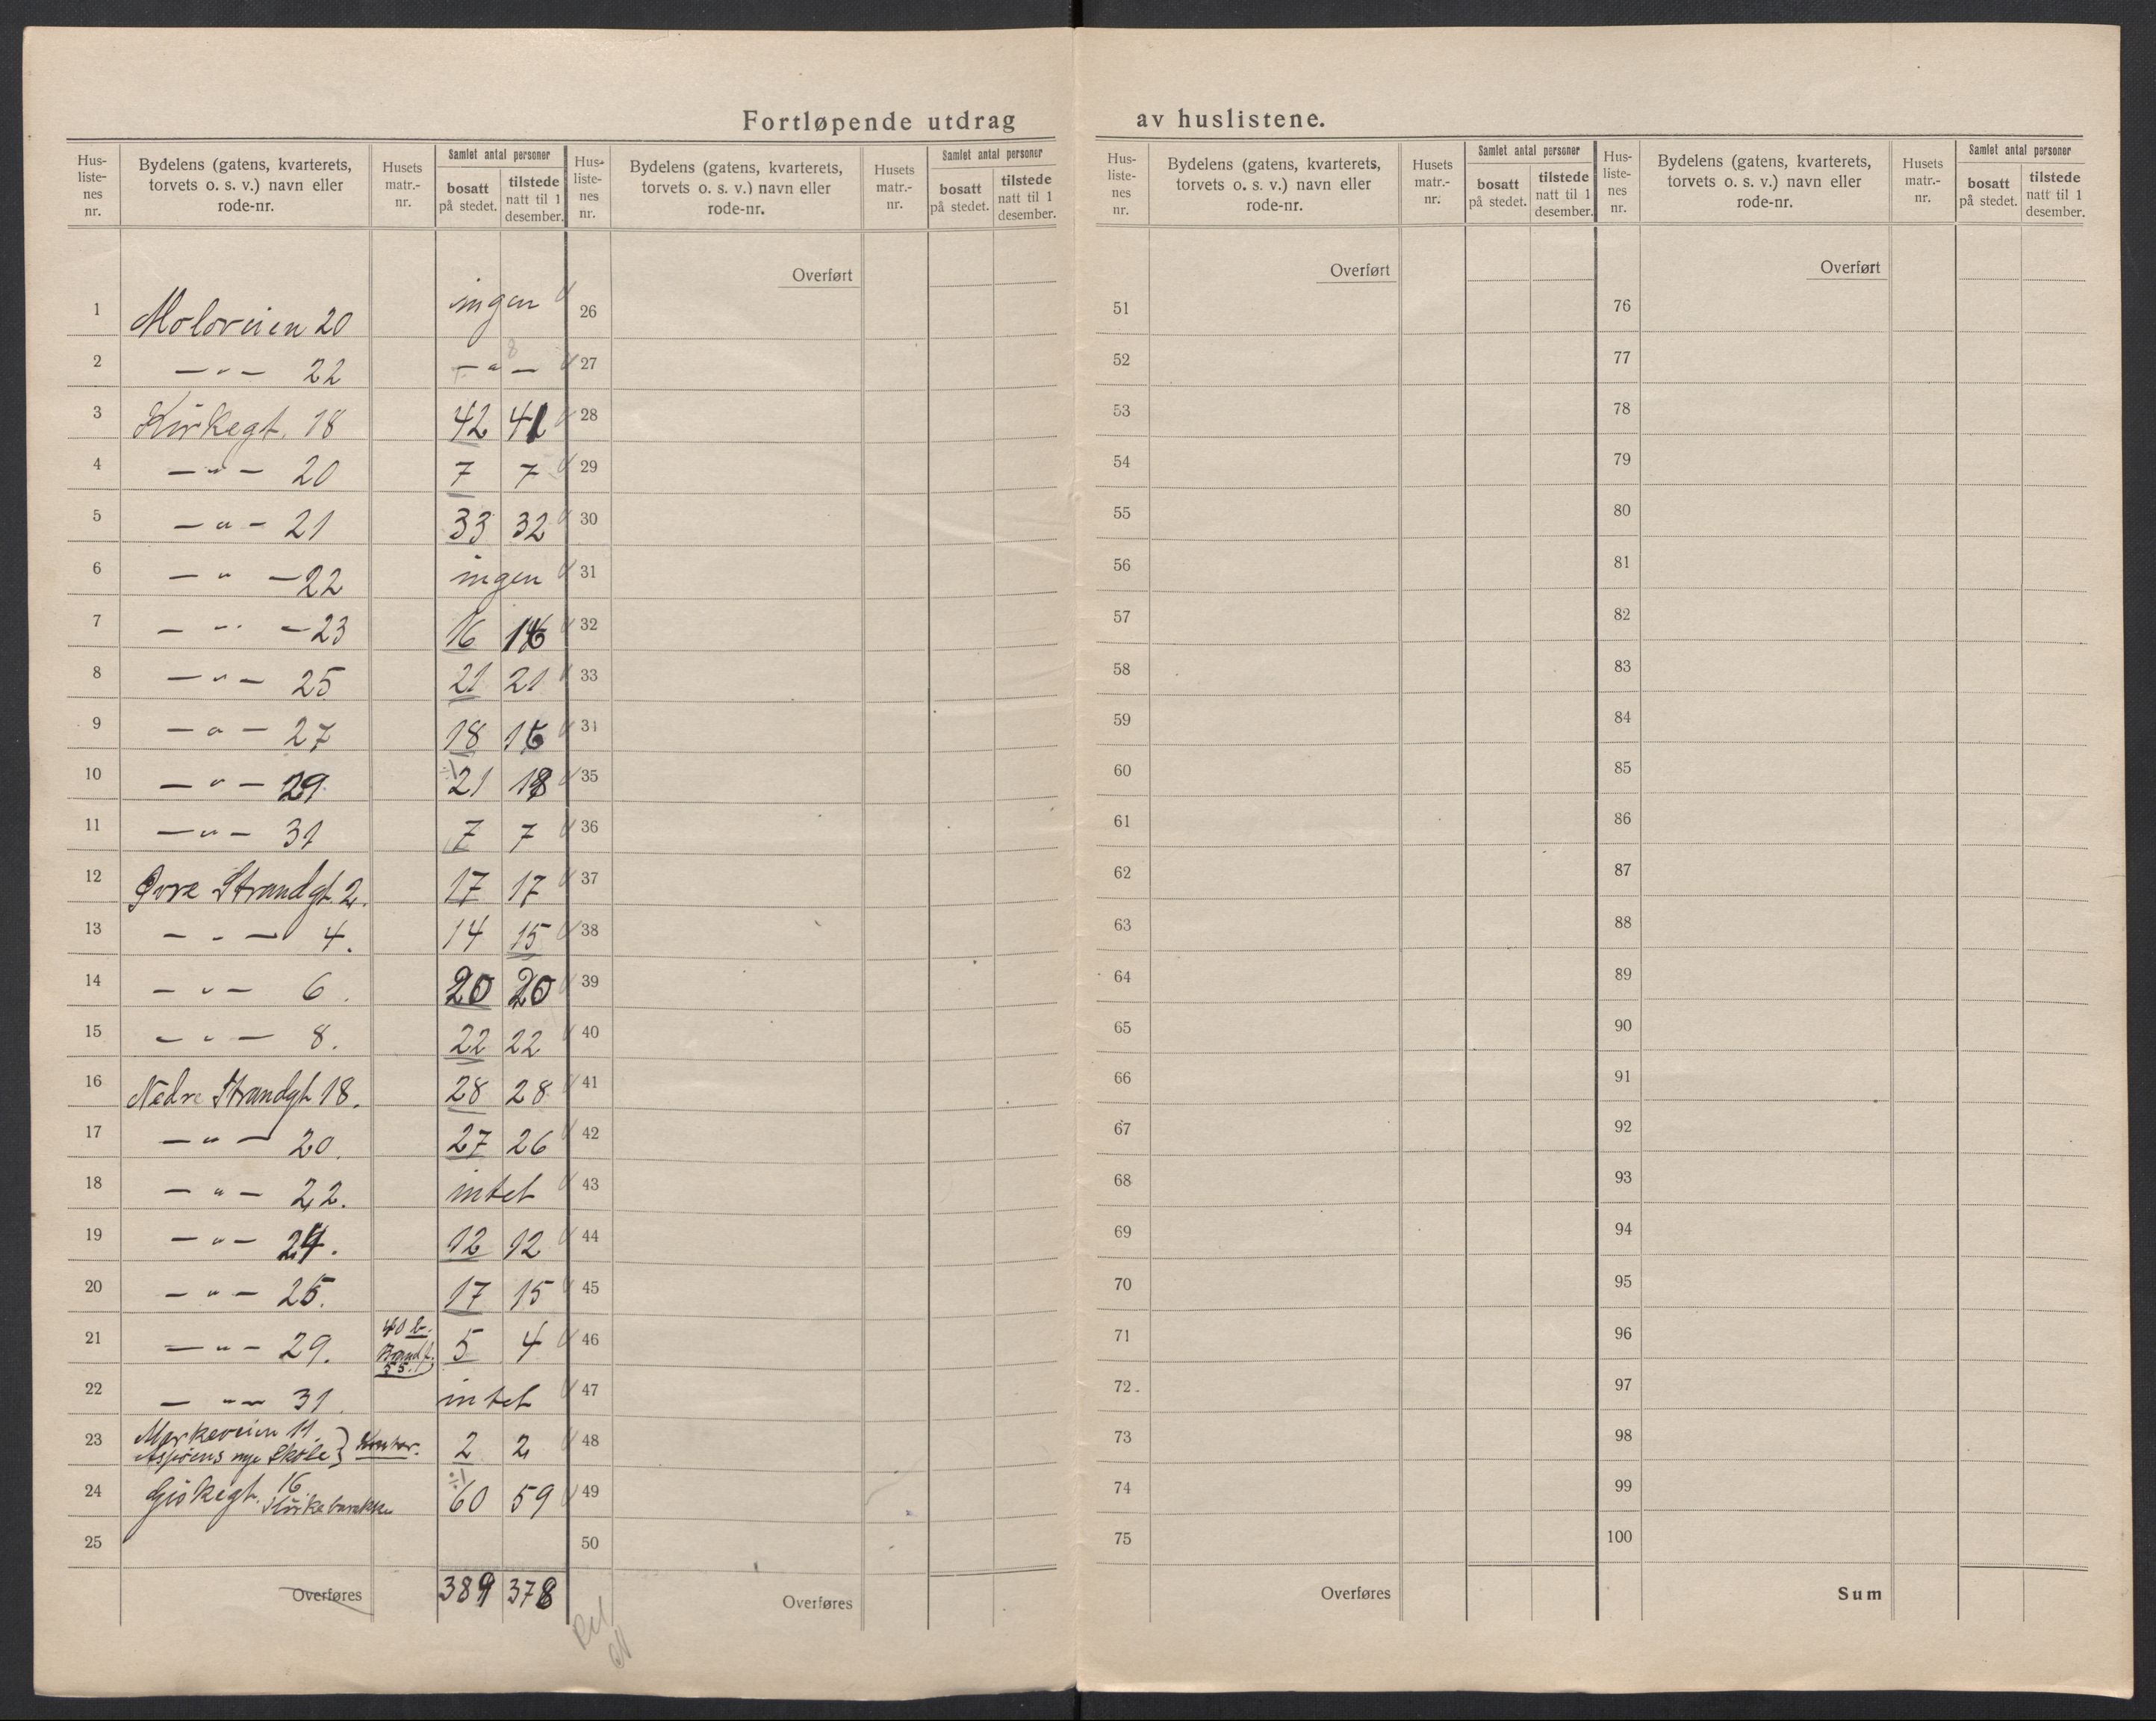 Fortløpende utdrag av huslistene.
Hus-listenes nr. Bydelens (gatens, kvarterets, torvets o. s. v.) navn eller rode-nr. Husets matr.-nr. Samlet antal personer bosatt på stedet. tilstede natt til 1 desember.
Hus-listenes nr. Bydelens (gatens, kvarterets, torvets o. s. v.) navn eller rode-nr. Husets matr.-nr. Samlet antal personer bosatt på stedet. tilstede natt til 1 desember.
Hus-listenes nr. Bydelens (gatens, kvarterets, torvets o. s. v.) navn eller rode-nr. Husets matr.-nr. Samlet antal personer bosatt på stedet. tilstede natt til 1 desember.
Hus-listenes nr. Bydelens (gatens, kvarterets, torvets o. s. v.) navn eller rode-nr. Husets matr.-nr. Samlet antal personer bosatt på stedet. tilstede natt til 1 desember.
Overført Overført Overført
1 Moloveien 20 ingen 26 51 76
2 — " — 22 — " — 27 52 77
3 Kirkegt. 18 42 41 28 53 78
4 — " — 20 7 7 29 54 79
5 — " — 21 33 32 30 55 80
6 — " — 22 ingen 31 56 81
7 — " — 23 16 16 32 57 82
8 — " — 25 21 21 33 58 83
9 — " — 27 18 16 34 59 84
10 — " — 29 ÷1 21 18 35 60 85
11 — " — 31 7 7 36 61 86
12 Øvre Strandgt. 2. 17 17 37 62 87
13 — " — 4. 14 15 38 63 88
14 — " — 6. 20 20 39 64 89
15 — " — 8. 22 22 40 65 90
16 Nedre Strandgt 18. 28 28 41 66 91
17 — " — 20. 27 26 42 67 92
18 — " — 22. intet 43 68 93
19 — " — 24. 12 12 44 69 94
20 — " — 25. 17 15 45 70 95
21 — " — 29. 40 b. Brandt. 55. 5 4 46 71 96
22 — " — 31 intet 47 72 97
23 Markeveien 11. Aspøens nye Skole } 2 2 48 73 98
24 Giskegt. 16. Kirkebarakke ÷1 60 59 49 74 99
25 50 75 100
Overføres 389 378 Overføres Overføres Sum